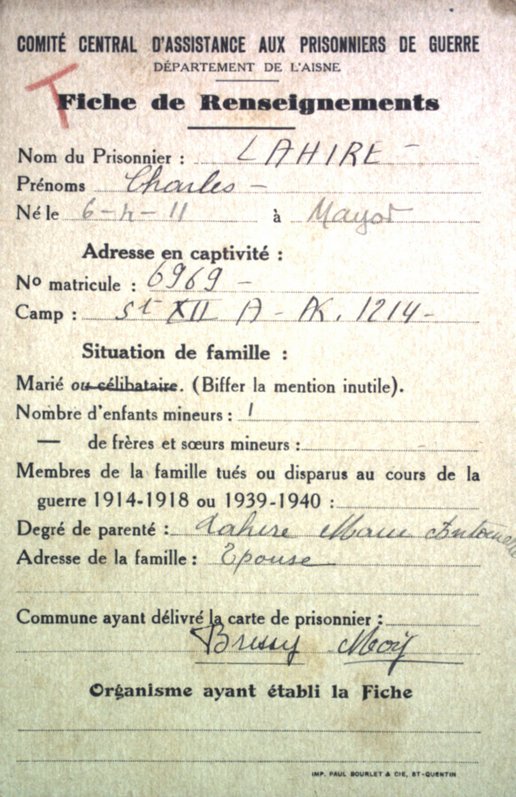 COMITÉ CENTRAL D'ASSISTANCE AUX PRISONNIERS DE GUERRE
DÉPARTEMENT DE L'AISNE
T
Fiche de Renseignements
Nom du Prisonnier : LAHIRE -
Prénoms Charles -
Né le 6-4-11 à Mayot
Adresse en captivité :
No matricule : 6969 -
Camp : St XII A - AK. 1214 -
Situation de famille :
Marié ou célibataire. (Biffer la mention inutile).
Nombre d'enfants mineurs : 1
— de frères et sœurs mineurs : -
Membres de la famille tués ou disparus au cours de la
guerre 1914-1918 ou 1939-1940 :
Degré de parenté : Lahire Marie Antoinette
Adresse de la famille : Epouse
Commune ayant délivré la carte de prisonnier :
Brissy Moÿ
Organisme ayant établi la Fiche
IMP. PAUL BOURLET & CIE, ST-QUENTIN